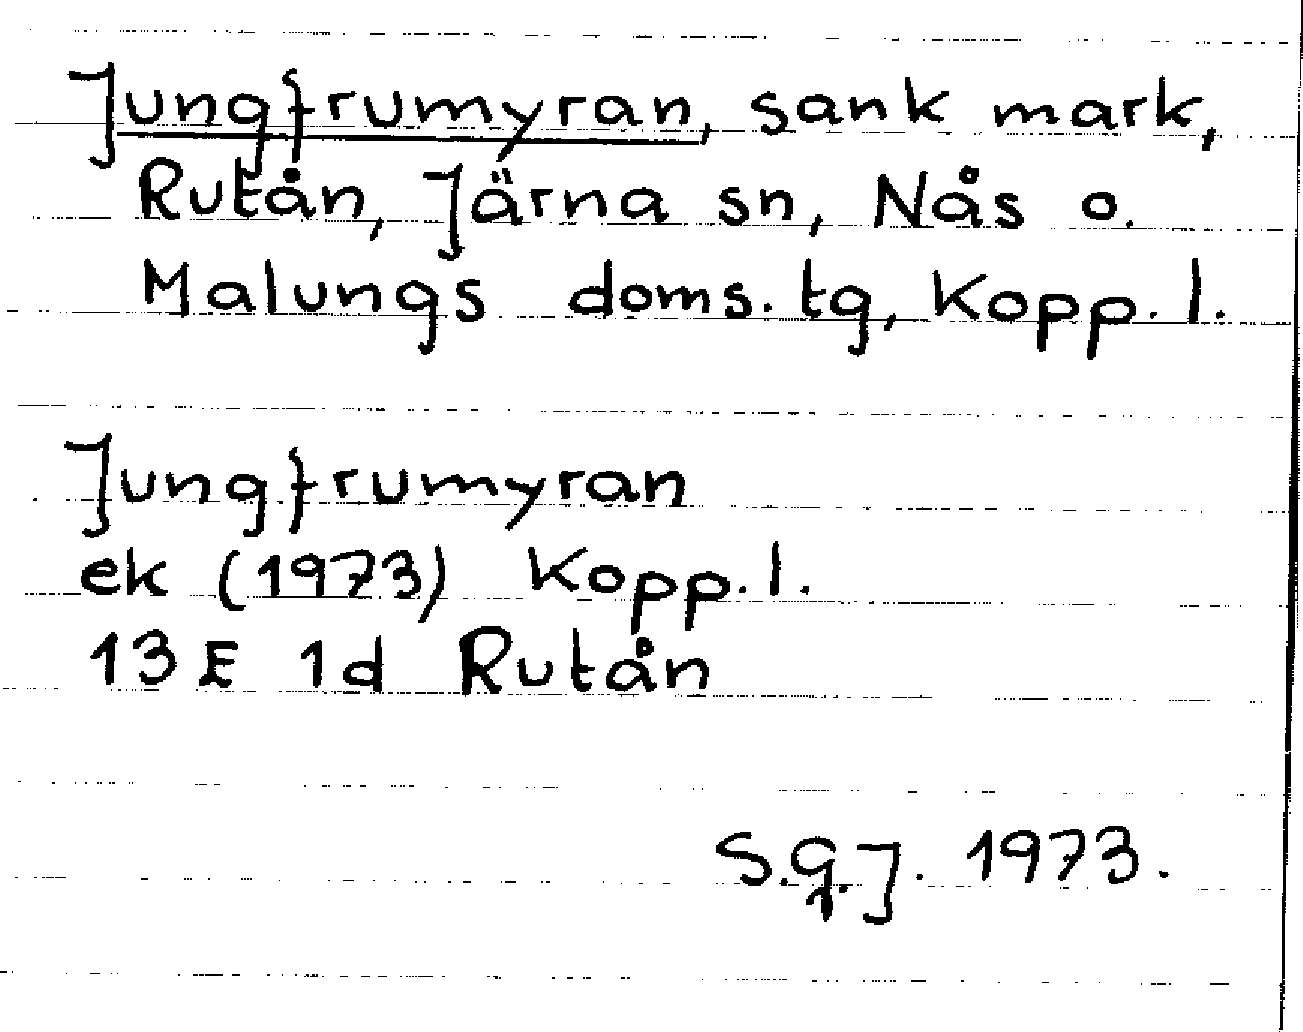 Jungfrumyran, sank mark,
Rutån, Järna sn, Nås o.
Malungs doms. tg, Kopp. l.
Jungfrumyran
ek (1973) Kopp. l.
13 E 1d Rutån
S.G.J. 1973.